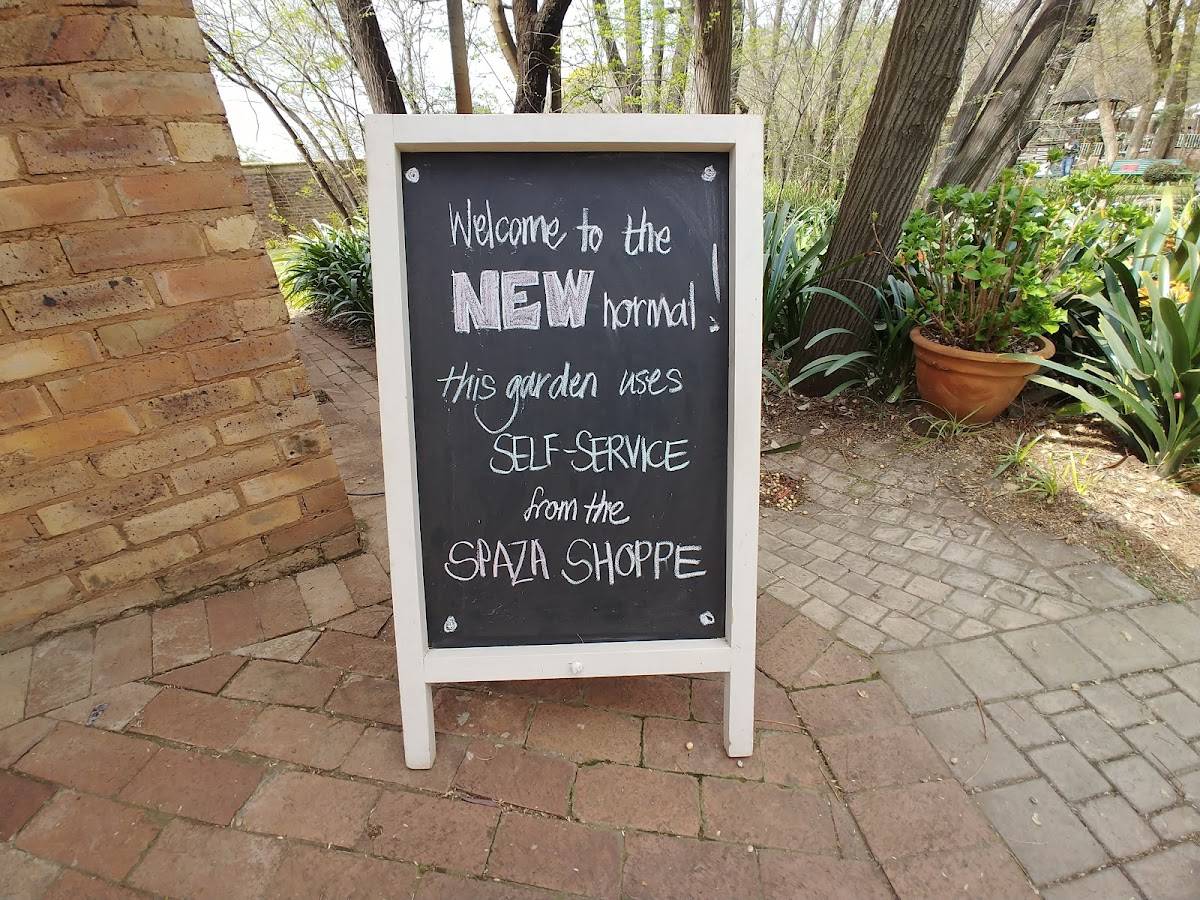 Welcome to the
NEW normal!
this garden uses
SELF-SERVICE
from the
SPAZA SHOPPE